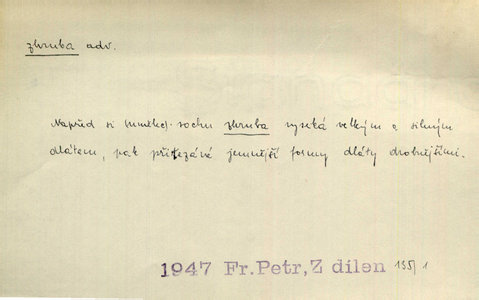 zhruba adv.
Napřed si umělec sochu zhruba vyseká velkým a silným
dlátem, pak přiřezává jemnější formy dláty drobnějšími.
1947 Fr.Petr, Z dílen 135/1